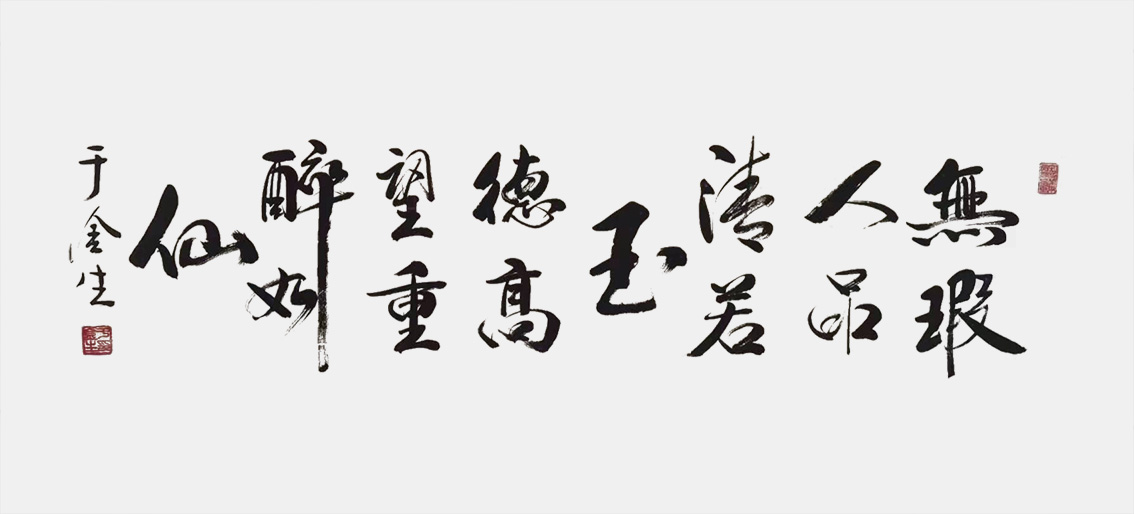 無瑕
人品
清若
玉
德高
望重
醉如
仙
于金生